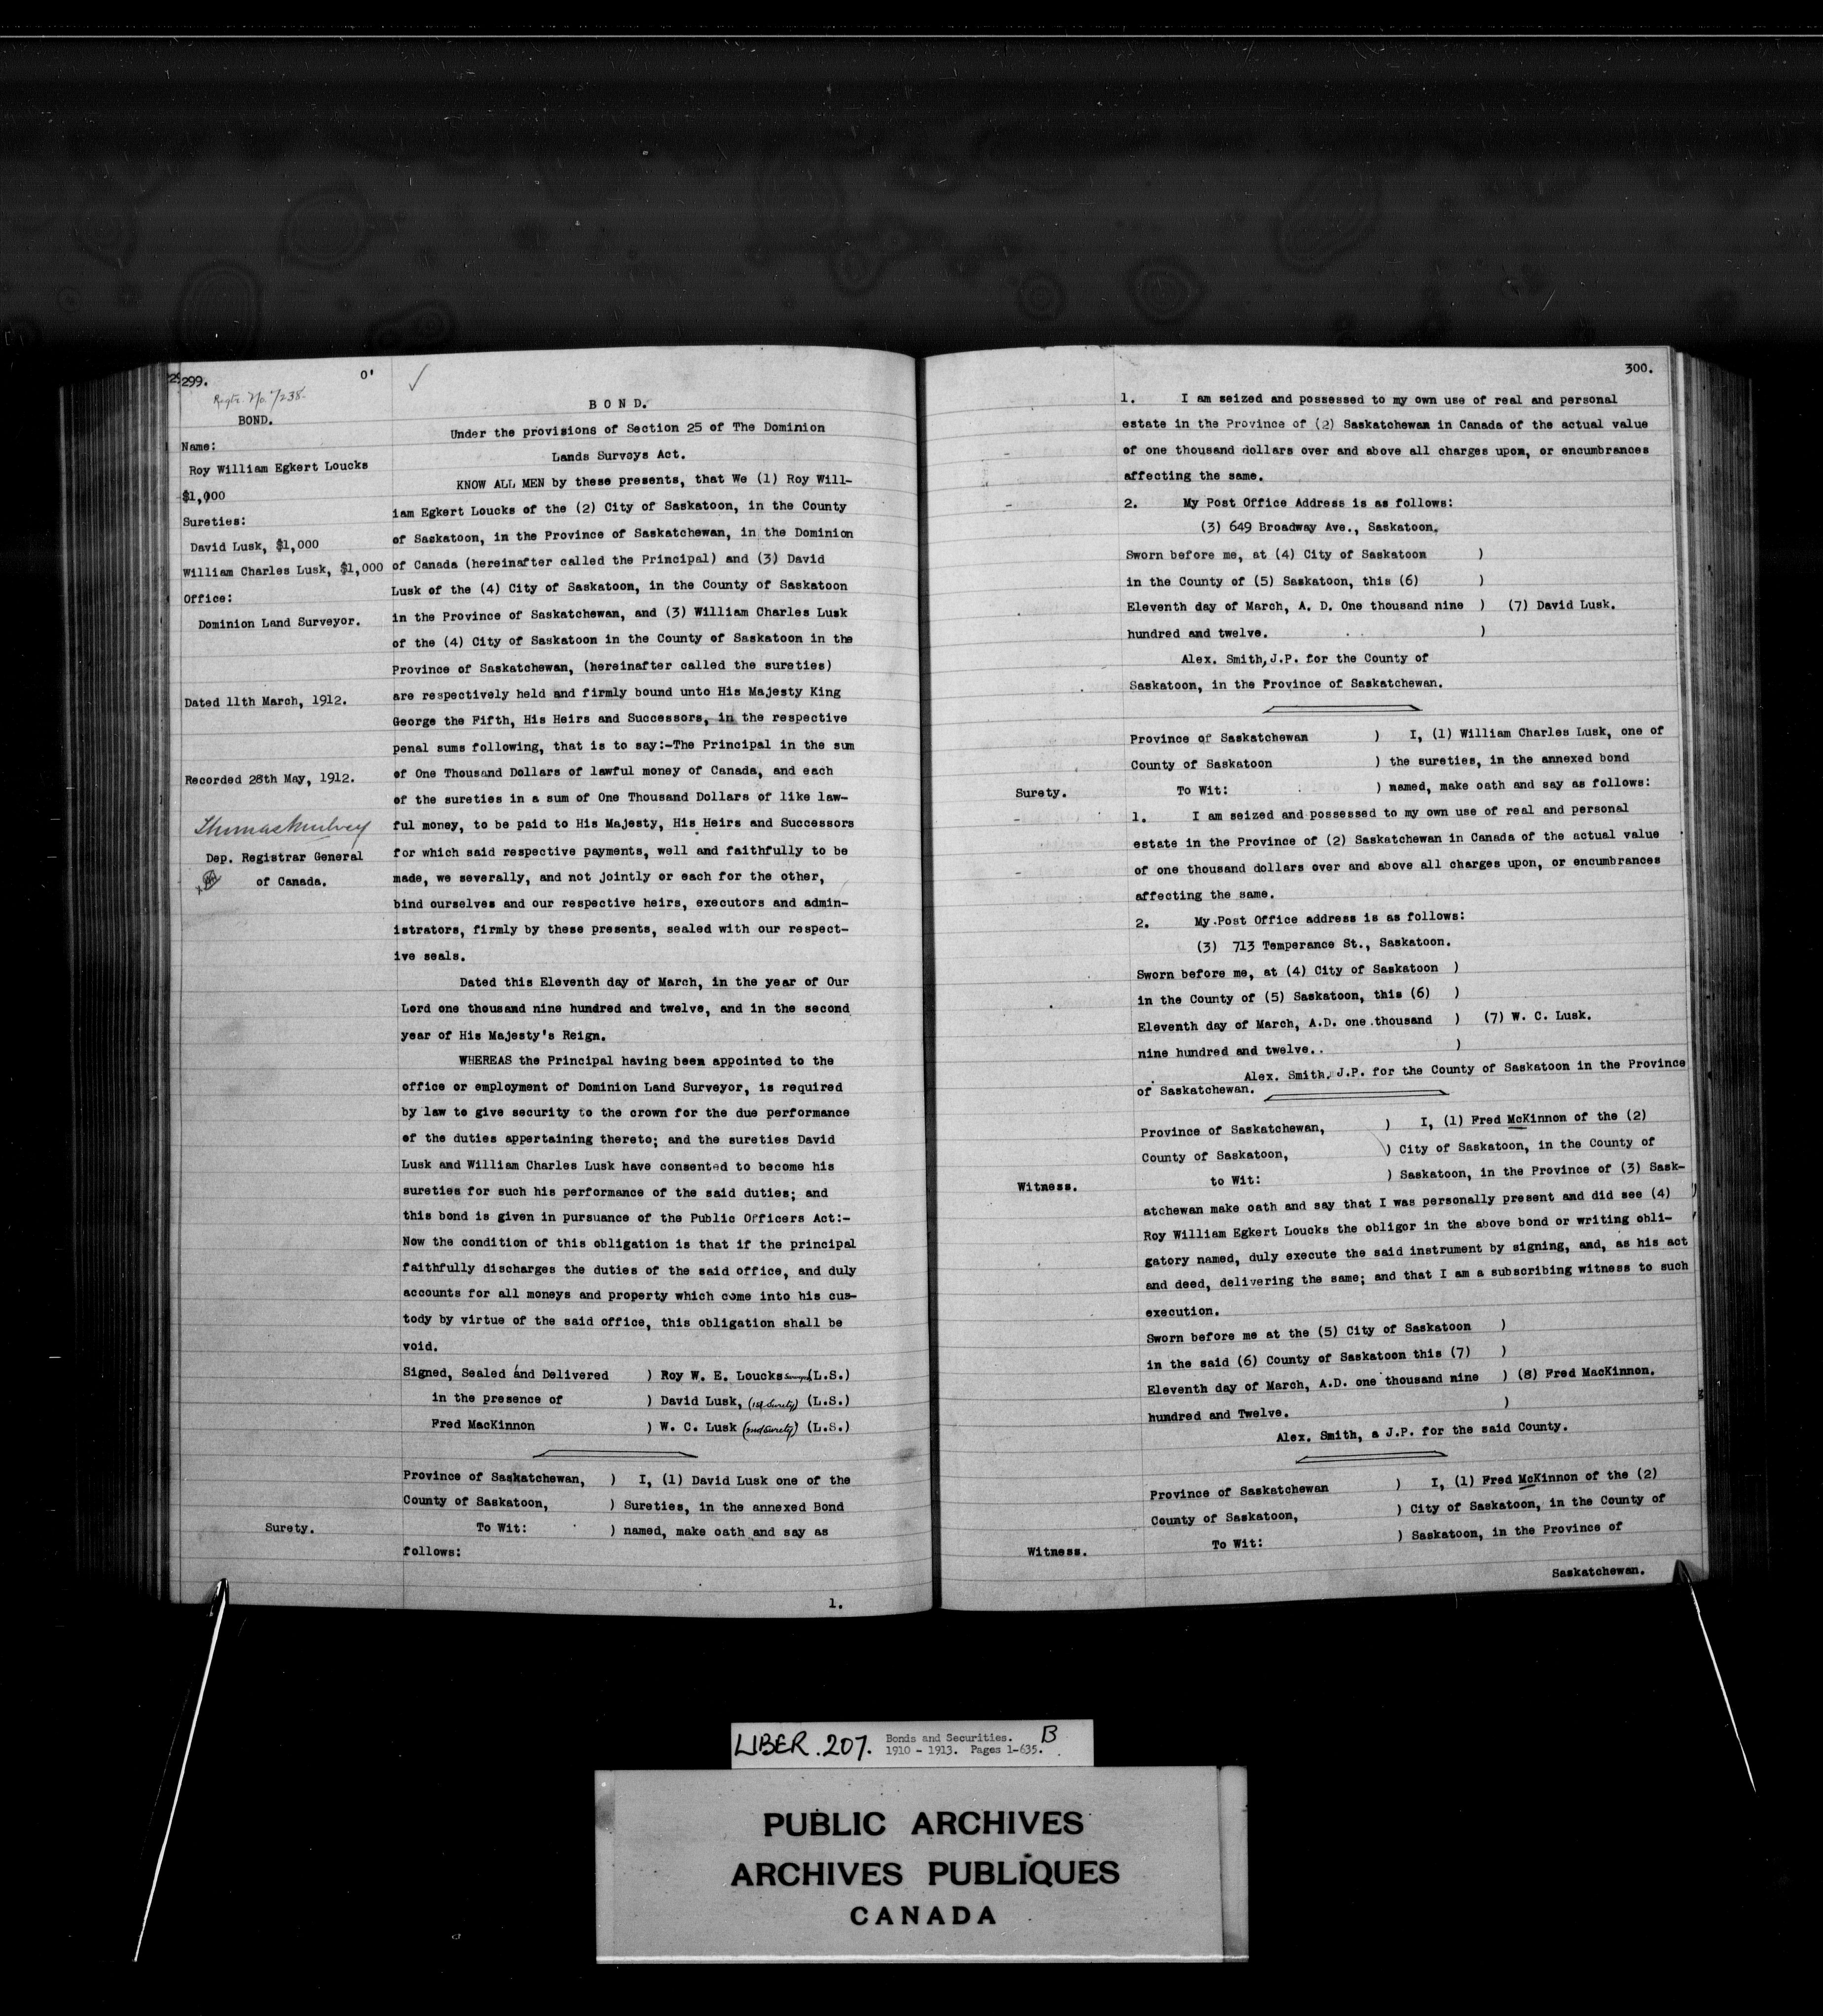 299.
0'
Regtr. No. 7/238.
BOND.
Name:
Roy William Egkert Loucks
$1,000
Sureties:
David Lusk, $1,000
William Charles Lusk, $1,000
Office:
Dominion Land Surveyor.
Dated 11th March, 1912.
Recorded 28th May, 1912.
Thomas Mulvey
Dep. Registrar General
of Canada.
Surety.
B O N D.
Under the provisions of Section 25 of The Dominion
Lands Surveys Act.
KNOW ALL MEN by these presents, that We (1) Roy Will-
iam Egkert Loucks of the (2) City of Saskatoon, in the County
of Saskatoon, in the Province of Saskatchewan, in the Dominion
of Canada (hereinafter called the Principal) and (3) David
Lusk of the (4) City of Saskatoon, in the County of Saskatoon
in the Province of Saskatchewan, and (3) William Charles Lusk
of the (4) City of Saskatoon in the County of Saskatoon in the
Province of Saskatchewan, (hereinafter called the sureties)
are respectively held and firmly bound unto His Majesty King
George the Fifth, His Heirs and Successors, in the respective
penal sums following, that is to say:-The Principal in the sum
of One Thousand Dollars of lawful money of Canada, and each
of the sureties in a sum of One Thousand Dollars of like law-
ful money, to be paid to His Majesty, His Heirs and Successors
for which said respective payments, well and faithfully to be
made, we severally, and not jointly or each for the other,
bind ourselves and our respective heirs, executors and admin-
istrators, firmly by these presents, sealed with our respect-
ive seals.
Dated this Eleventh day of March, in the year of Our
Lord one thousand nine hundred and twelve, and in the second
year of His Majesty's Reign.
WHEREAS the Principal having been appointed to the
office or employment of Dominion Land Surveyor, is required
by law to give security to the crown for the due performance
of the duties appertaining thereto; and the sureties David
Lusk and William Charles Lusk have consented to become his
sureties for such his performance of the said duties; and
this bond is given in pursuance of the Public Officers Act:-
Now the condition of this obligation is that if the principal
faithfully discharges the duties of the said office, and duly
accounts for all moneys and property which come into his cus-
tody by virtue of the said office, this obligation shall be
void.
Signed, Sealed and Delivered ) Roy W. E. Loucks (L.S.)
in the presence of ) David Lusk, (1st Surety) (L.S.)
Fred MacKinnon ) W. C. Lusk (2nd Surety) (L.S.)
Province of Saskatchewan, ) I, (1) David Lusk one of the
County of Saskatoon, ) Sureties, in the annexed Bond
To Wit: ) named, make oath and say as
follows:
1.
300.
1. I am seized and possessed to my own use of real and personal
estate in the Province of (2) Saskatchewan in Canada of the actual value
of one thousand dollars over and above all charges upon, or encumbrances
affecting the same.
2. My Post Office Address is as follows:
(3) 649 Broadway Ave., Saskatoon.
Sworn before me, at (4) City of Saskatoon )
in the County of (5) Saskatoon, this (6) )
Eleventh day of March, A. D. One thousand nine ) (7) David Lusk.
hundred and twelve. )
Alex. Smith, J.P. for the County of
Saskatoon, in the Province of Saskatchewan.
Province of Saskatchewan ) I, (1) William Charles Lusk, one of
County of Saskatoon ) the sureties, in the annexed bond
Surety. To Wit: ) named, make oath and say as follows:
1. I am seized and possessed to my own use of real and personal
estate in the Province of (2) Saskatchewan in Canada of the actual value
of one thousand dollars over and above all charges upon, or encumbrances
affecting the same.
2. My Post Office address is as follows:
(3) 713 Temperance St., Saskatoon.
Sworn before me, at (4) City of Saskatoon )
in the County of (5) Saskatoon, this (6) )
Eleventh day of March, A.D. one thousand ) (7) W. C. Lusk.
nine hundred and twelve. )
Alex. Smith. J.P. for the County of Saskatoon in the Province
of Saskatchewan.
Province of Saskatchewan, ) I, (1) Fred McKinnon of the (2)
County of Saskatoon, ) City of Saskatoon, in the County of
Witness. to Wit: ) Saskatoon, in the Province of (3) Sask-
atchewan make oath and say that I was personally present and did see (4)
Roy William Egkert Loucks the obligor in the above bond or writing obli-
gatory named, duly execute the said instrument by signing, and, as his act
and deed, delivering the same; and that I am a subscribing witness to such
execution.
Sworn before me at the (5) City of Saskatoon )
in the said (6) County of Saskatoon this (7) )
Eleventh day of March, A.D. one thousand nine ) (8) Fred MacKinnon.
hundred and Twelve. )
Alex. Smith, a J.P. for the said County.
Province of Saskatchewan ) I, (1) Fred McKinnon of the (2)
County of Saskatoon, ) City of Saskatoon, in the County of
Witness. To Wit: ) Saskatoon, in the Province of
Saskatchewan.
LIBER. 207. Bonds and Securities. B
1910 - 1913. Pages 1-635.
PUBLIC ARCHIVES
ARCHIVES PUBLIQUES
CANADA